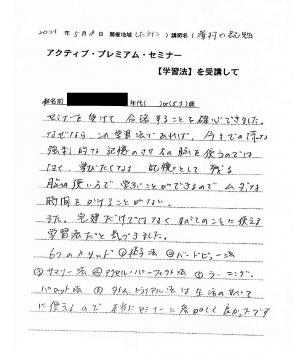 2021年5月8日 開催地域(オンライン)講師名(澤村の記憶)
アクティブ・プレミアム・セミナー
【学習法】を受講して
お名前 年代( )or(55)歳
セミナーを受けて合格することを確心できました。
なぜなら、この学習法であれば、今までの様な
強制的な記憶のさせ方の脳を使うのでは
なく、学びたくなる 記憶として残る
脳の使い方で学ぶことができるのでムダな
時間をかけることがない。
また、宅建だけではなくすべてのことに使える
学習法だと気づきました。
6つのメリット ①椅子法 ②バードビュー法
③サマリー法 ④アクセル・パーフェクト法 ⑤ラーニング・
パロット法 ⑥タイムトライアル法は生活のすべて
に使えるので本当にセミナーに参加して良かったです